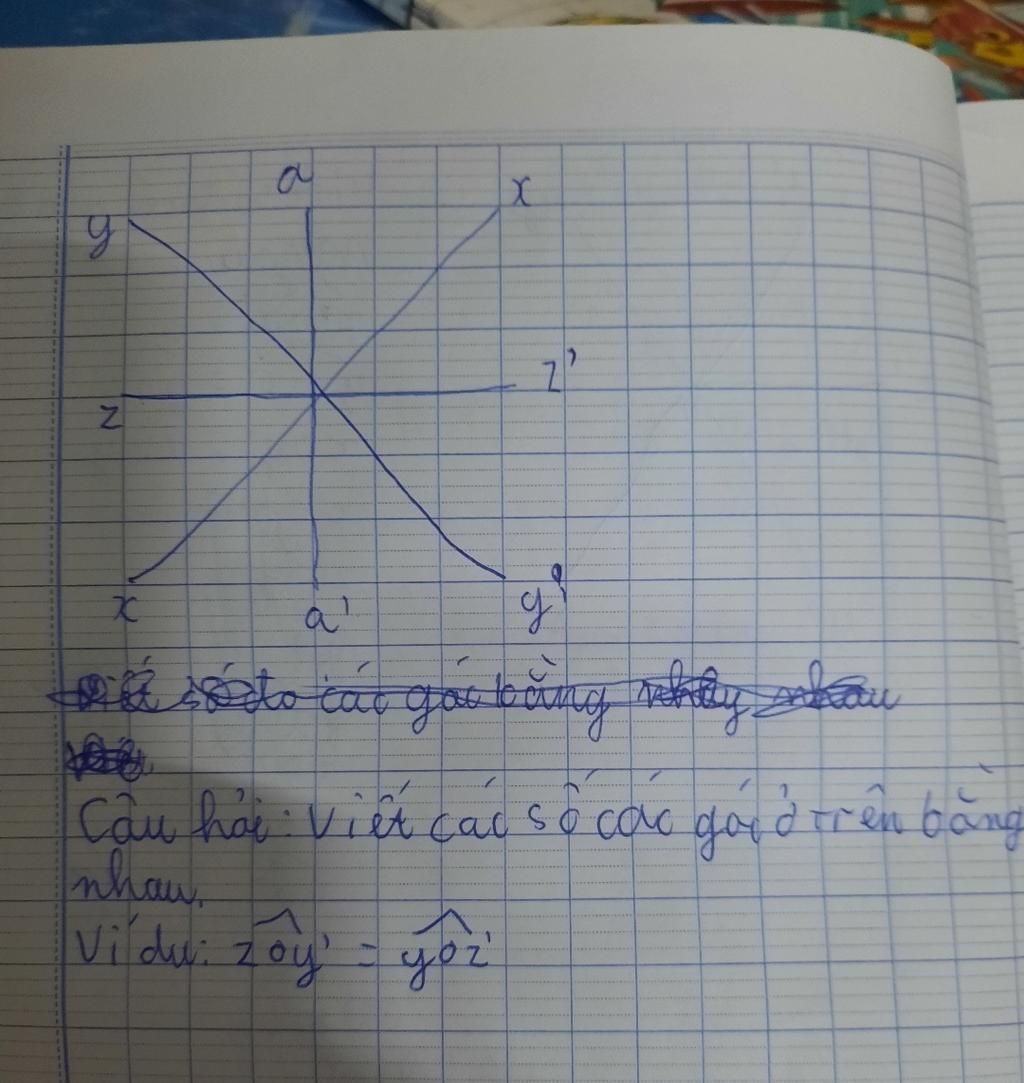 a
x
y
z'
z
x
a'
y'
số đo các góc bằng nhau
Câu hỏi: Viết các số các góc ở trên bằng
nhau.
Ví dụ: zÔy' = yÔz'